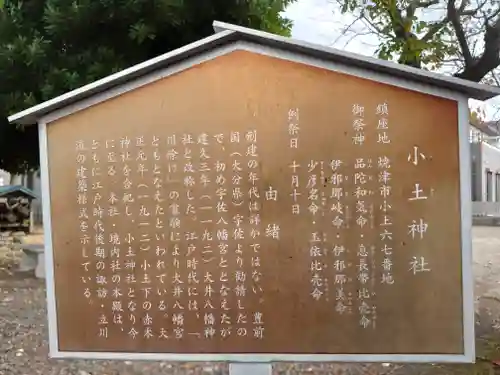 小土神社
鎮座地 焼津市小土六七番地
御祭神 品陀和気命・息長帯比売命
伊邪那岐命・伊邪那美命
少彦名命・玉依比売命
例祭日 十月十日
由緒
創建の年代は詳かではない。豊前
国(大分県)宇佐より勧請したの
で、初め宇佐八幡宮ととなえたが
建久三年(一一九二)大井八幡神
社と改称した。江戸時代には、「
川除け」の霊験により大井八幡宮
ともとなえたといわれている。大
正元年(一九一二)小土下の赤木
神社を合祀し、小土神社となり今
に至る。本社・境内社の本殿は、
ともに江戸時代後期の諏訪・立川
流の建築様式を示している。